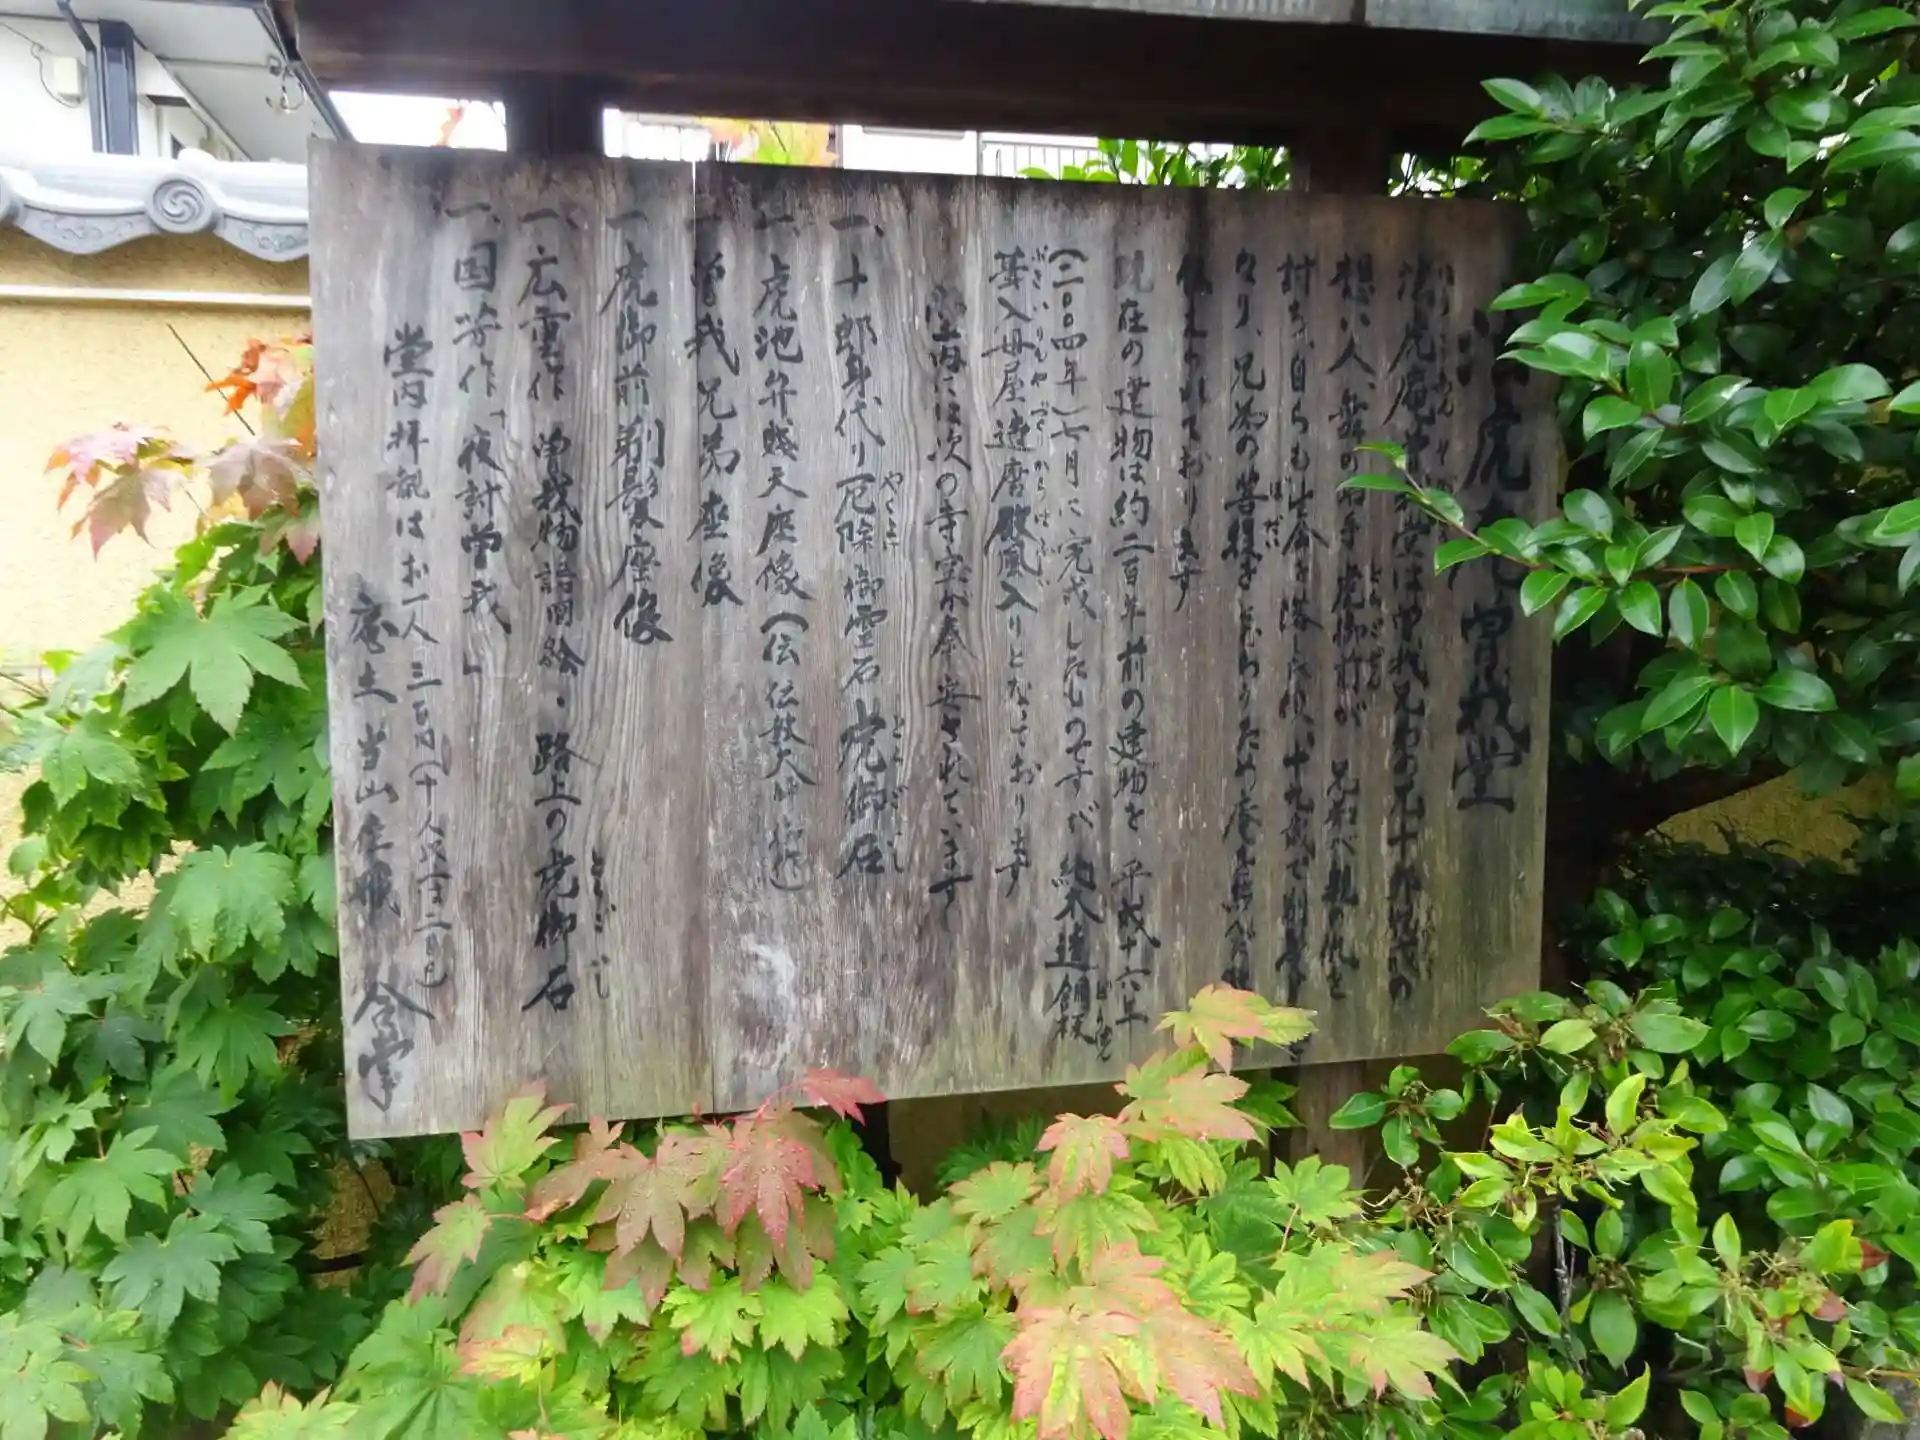 法虎庵曽我堂
法虎庵曽我堂は曽我兄弟の兄十郎祐成の
想い人、舞の名手虎御前が 兄弟が親の仇を
討ち、自らも生命を落した後、十九歳で剃髪
なり、兄弟の菩提をとむらうため庵を結んだ
伝えられております
現在の建物は約二百年前の建物を 平成十六年
(二〇〇四年)七月に完成したものですが 純木造銅板
葺入母屋造唐破風入りとなっております
堂内には次の寺宝が奉安されています
一、十郎身代り厄除御霊石 虎御石
一、虎池弁財天座像(伝 伝教大師作)
一、曽我兄弟座像
一、虎御前剃髪座像
一、広重作 曽我物語図絵・路上の虎御石
一、国芳作「夜討曽我」
堂内拝観はお一人 三百円(十人以上二百円)
庵主 当山住職 合掌